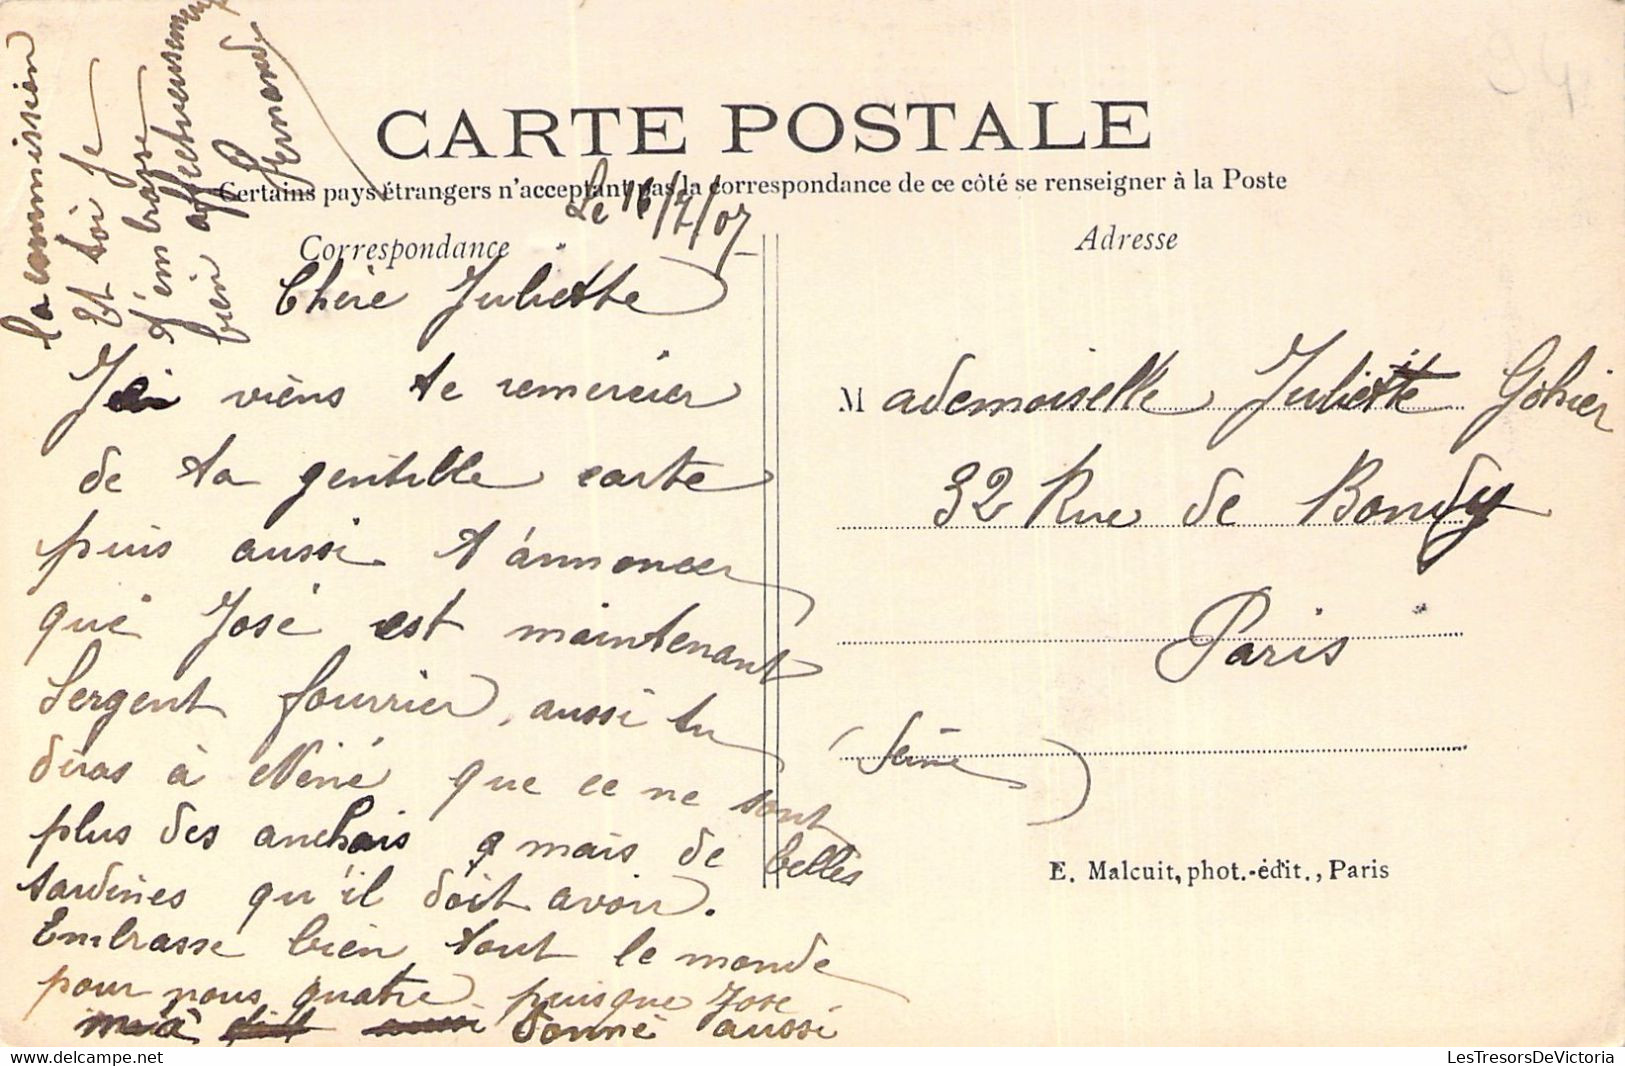 CARTE POSTALE
Certains pays étrangers n'acceptant pas la correspondance de ce côté se renseigner à la Poste
Correspondance
Adresse
Le 16/7/07
Chère Juliette
Je viens te remercier
de ta gentille carte
puis aussi t'annoncer
que José est maintenant
Sergent fourrier, aussi tu
diras à Néné que ce ne sont
plus des anchois mais de belles
sardines qu'il doit avoir.
Embrasse bien tout le monde
pour nous quatre puisque José
m'a donné aussi
la commission
Et toi je
t'embrasse
bien affectueusement
Fernand
Mademoiselle Juliette Gohier
32 Rue de Bondy
Paris
(Seine)
E. Malcuit, phot.-édit., Paris
94
LesTresorsDeVictoria
delcampe.net